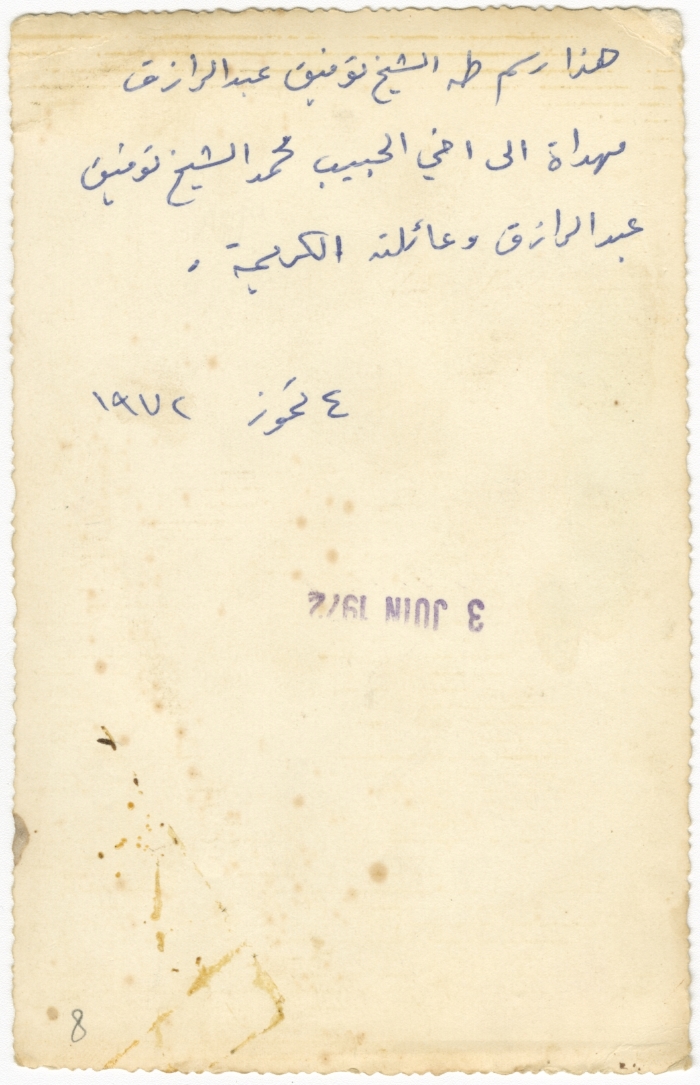 هذا رسم طه الشيخ توفيق عبد الرازق
مهداة الى اخي الحبيب محمد الشيخ توفيق
عبد الرازق وعائلته الكريمة .
٤ تموز ١٩٧٢
3 JUIN 1972
8